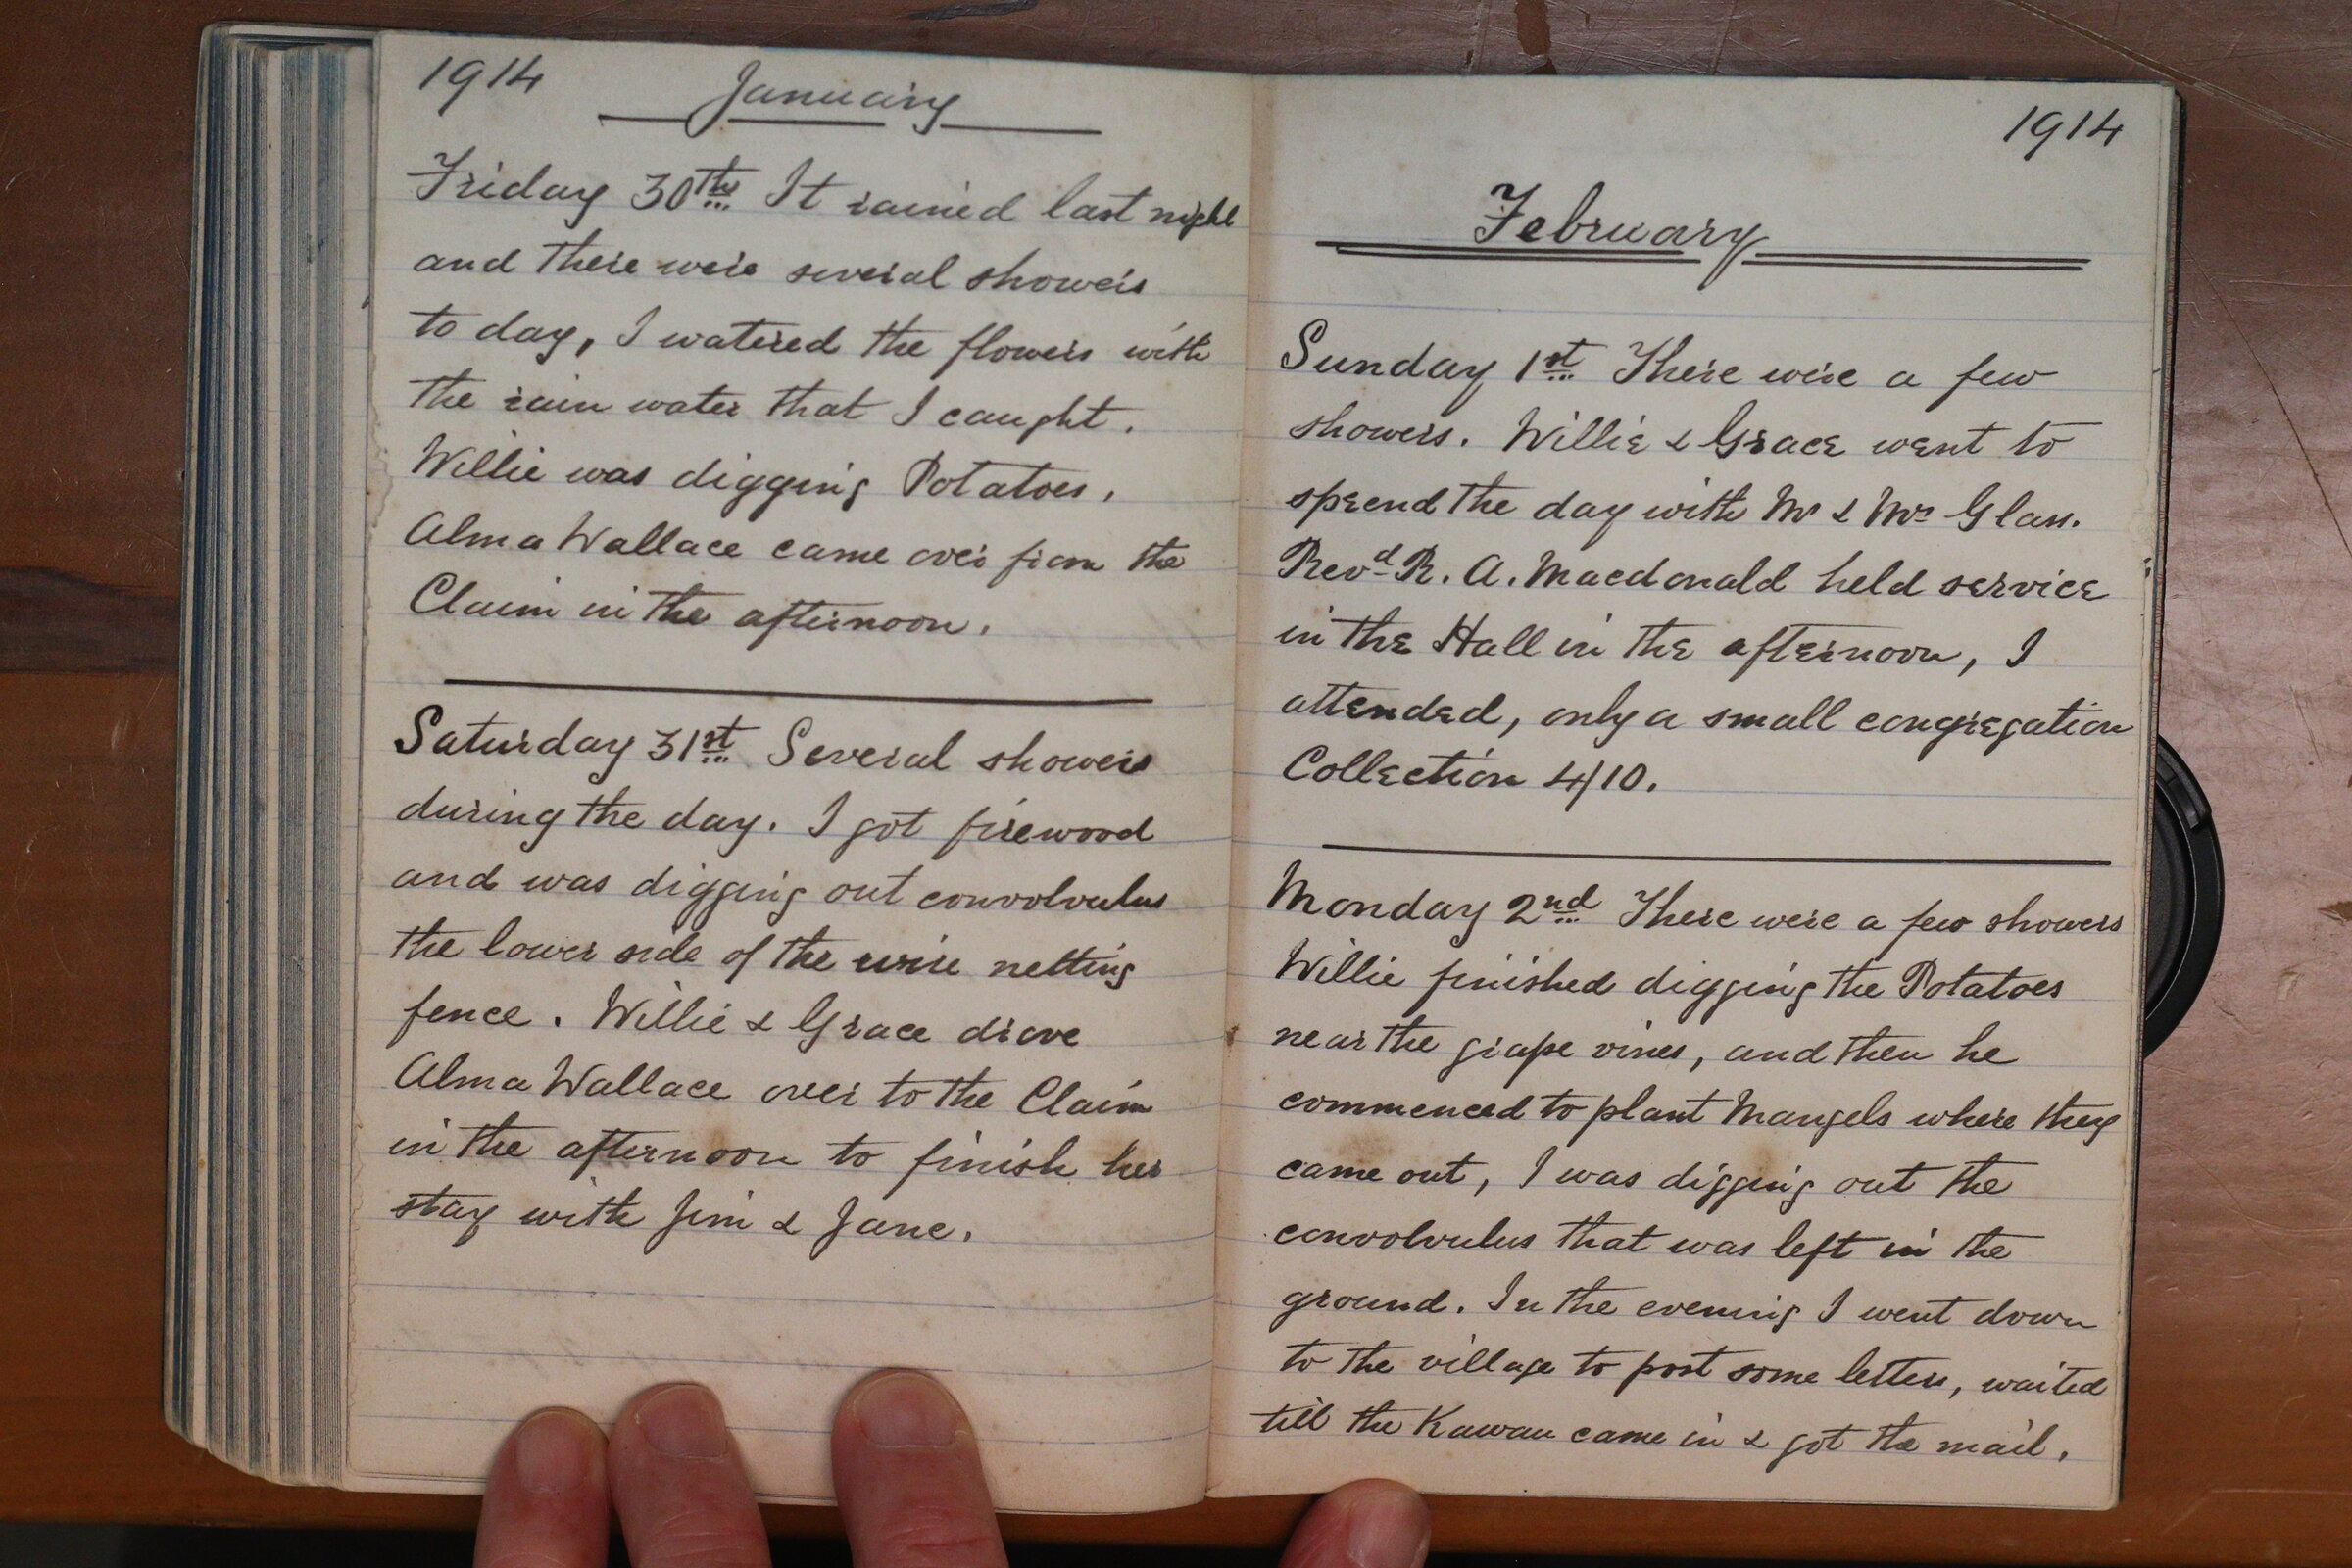 1914 January
Friday 30th It rained last night
and there were several showers
to day, I watered the flowers with
the rain water that I caught.
Willie was digging Potatoes.
Alma Wallace came over from the
Claim in the afternoon.
Saturday 31st Several showers
during the day. I got firewood
and was digging out convolvulus
the lower side of the wire netting
fence. Willie & Grace drove
Alma Wallace over to the Claim
in the afternoon to finish her
stay with Jim & Jane.
1914
February
Sunday 1st There were a few
showers. Willie & Grace went to
spend the day with Mr & Mrs Glass.
Revd R. A. Macdonald held service
in the Hall in the afternoon, I
attended, only a small congregation
Collection 4/10.
Monday 2nd There were a few showers
Willie finished digging the Potatoes
near the grape vines, and then he
commenced to plant Mangels where they
came out, I was digging out the
convolvulus that was left in the
ground. In the evening I went down
to the village to post some letters, waited
till the Kawau came in & got the mail.